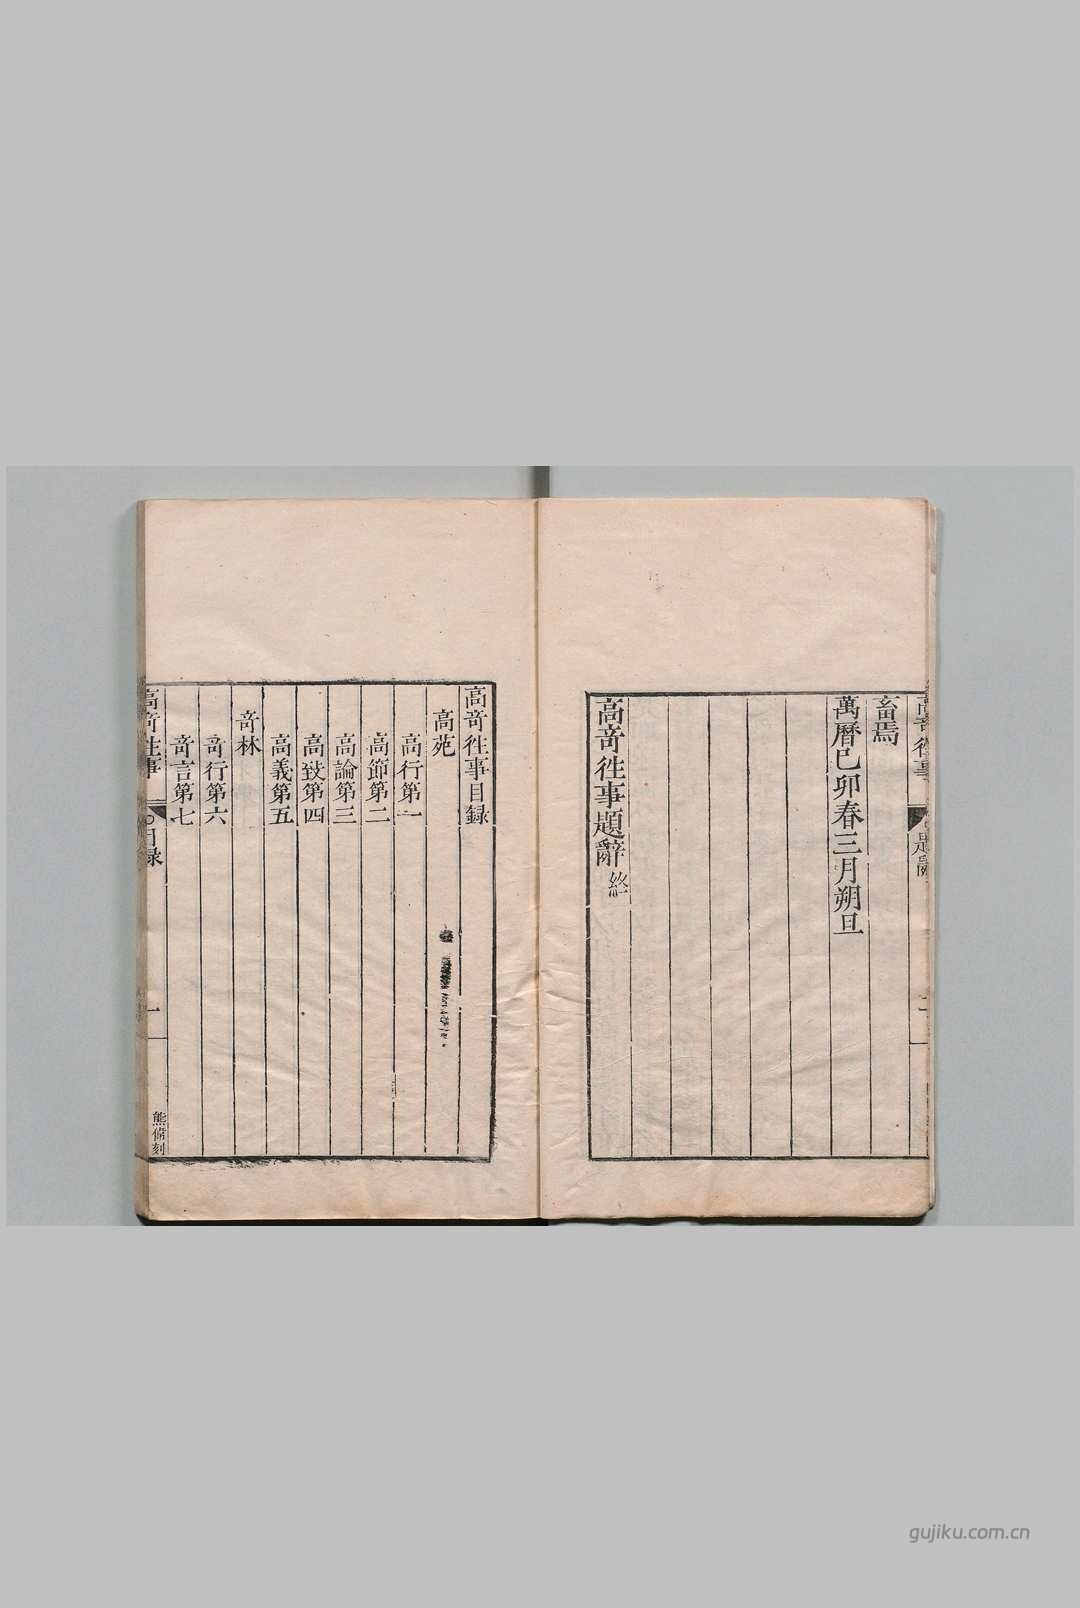 高竒徃事
題辭
二
畜焉
萬曆己卯春三月朔旦
高竒徃事題辭終
高竒徃事目録
高苑
高行第一
高節第二
高論第三
高致第四
高義第五
竒林
竒行第六
竒言第七
高竒徃事
目録
一
熊脩刻
gujiku.com.cn